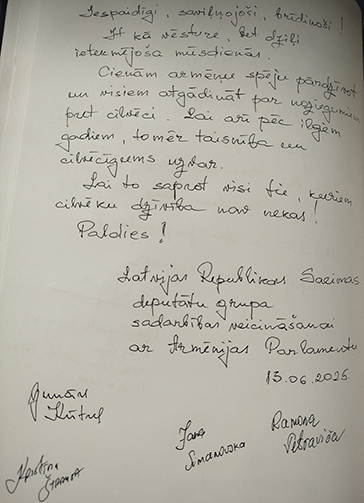 Iespaidīgi, saviļņojoši, brīdinoši!
It kā vēsture, bet dziļi
ietekmējoša mūsdienās.
Cienām armēņu spēju pārdzīvot
un visiem atgādināt par noziegumiem
pret cilvēci. Lai arī pēc ilgiem
gadiem, tomēr taisnība un
cilvēcīgums uzvar.
Lai to saprot visi tie, kuriem
cilvēku dzīvība nav nekas!
Paldies!
Latvijas Republikas Saeimas
deputātu grupa
sadarbības veicināšanai
ar Armēnijas Parlamentu
13.06.2025
Gunārs
Kūtris
Ramona
Petraviča
Jana
Simanovska
Kristīne